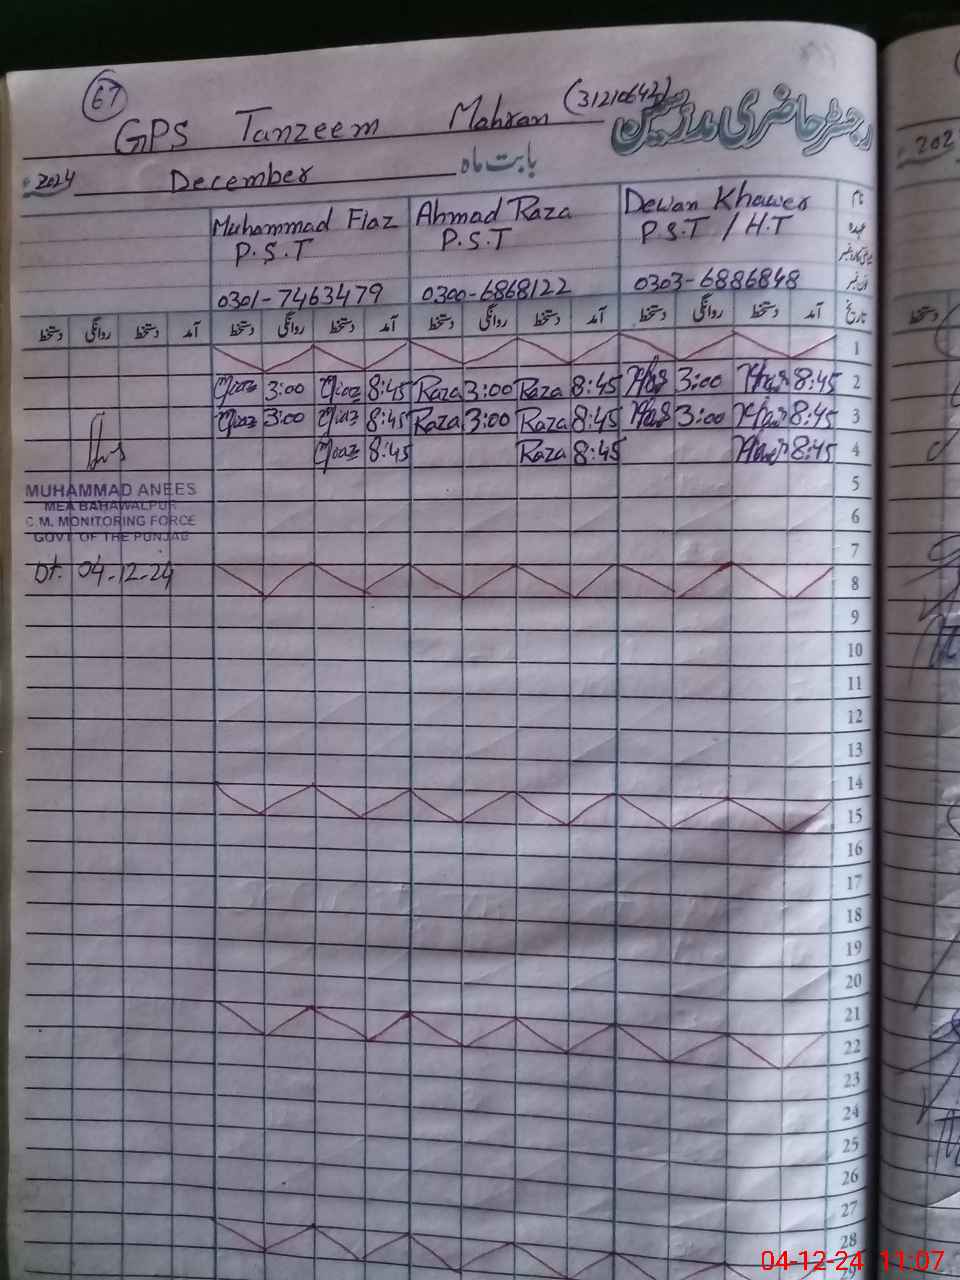 67
GPS Tanzeem Mahran (31210642) رجسٹر حاضری مدرسین
2024 December بابت ماہ
Muhammad Fiaz Ahmad Raza Dewan Khawer نام
P.S.T P.S.T P.S.T / H.T عہدہ
0301-7463479 0300-6868122 0303-6886848
دستخط روانگی دستخط آمد دستخط روانگی دستخط آمد دستخط روانگی دستخط آمد دستخط روانگی دستخط آمد تاریخ
1
3:00 8:45 Raza 3:00 Raza 8:45 3:00 8:45 2
3:00 8:45 Raza 3:00 Raza 8:45 3:00 8:45 3
8:45 Raza 8:45 8:45 4
MUHAMMAD ANEES
MEA BAHAWALPUR
C.M. MONITORING FORCE
GOVT OF THE PUNJAB
Dt. 04-12-24
5
6
7
8
9
10
11
12
13
14
15
16
17
18
19
20
21
22
23
24
25
26
27
28
29
202
دستخط
04-12-24 11:07